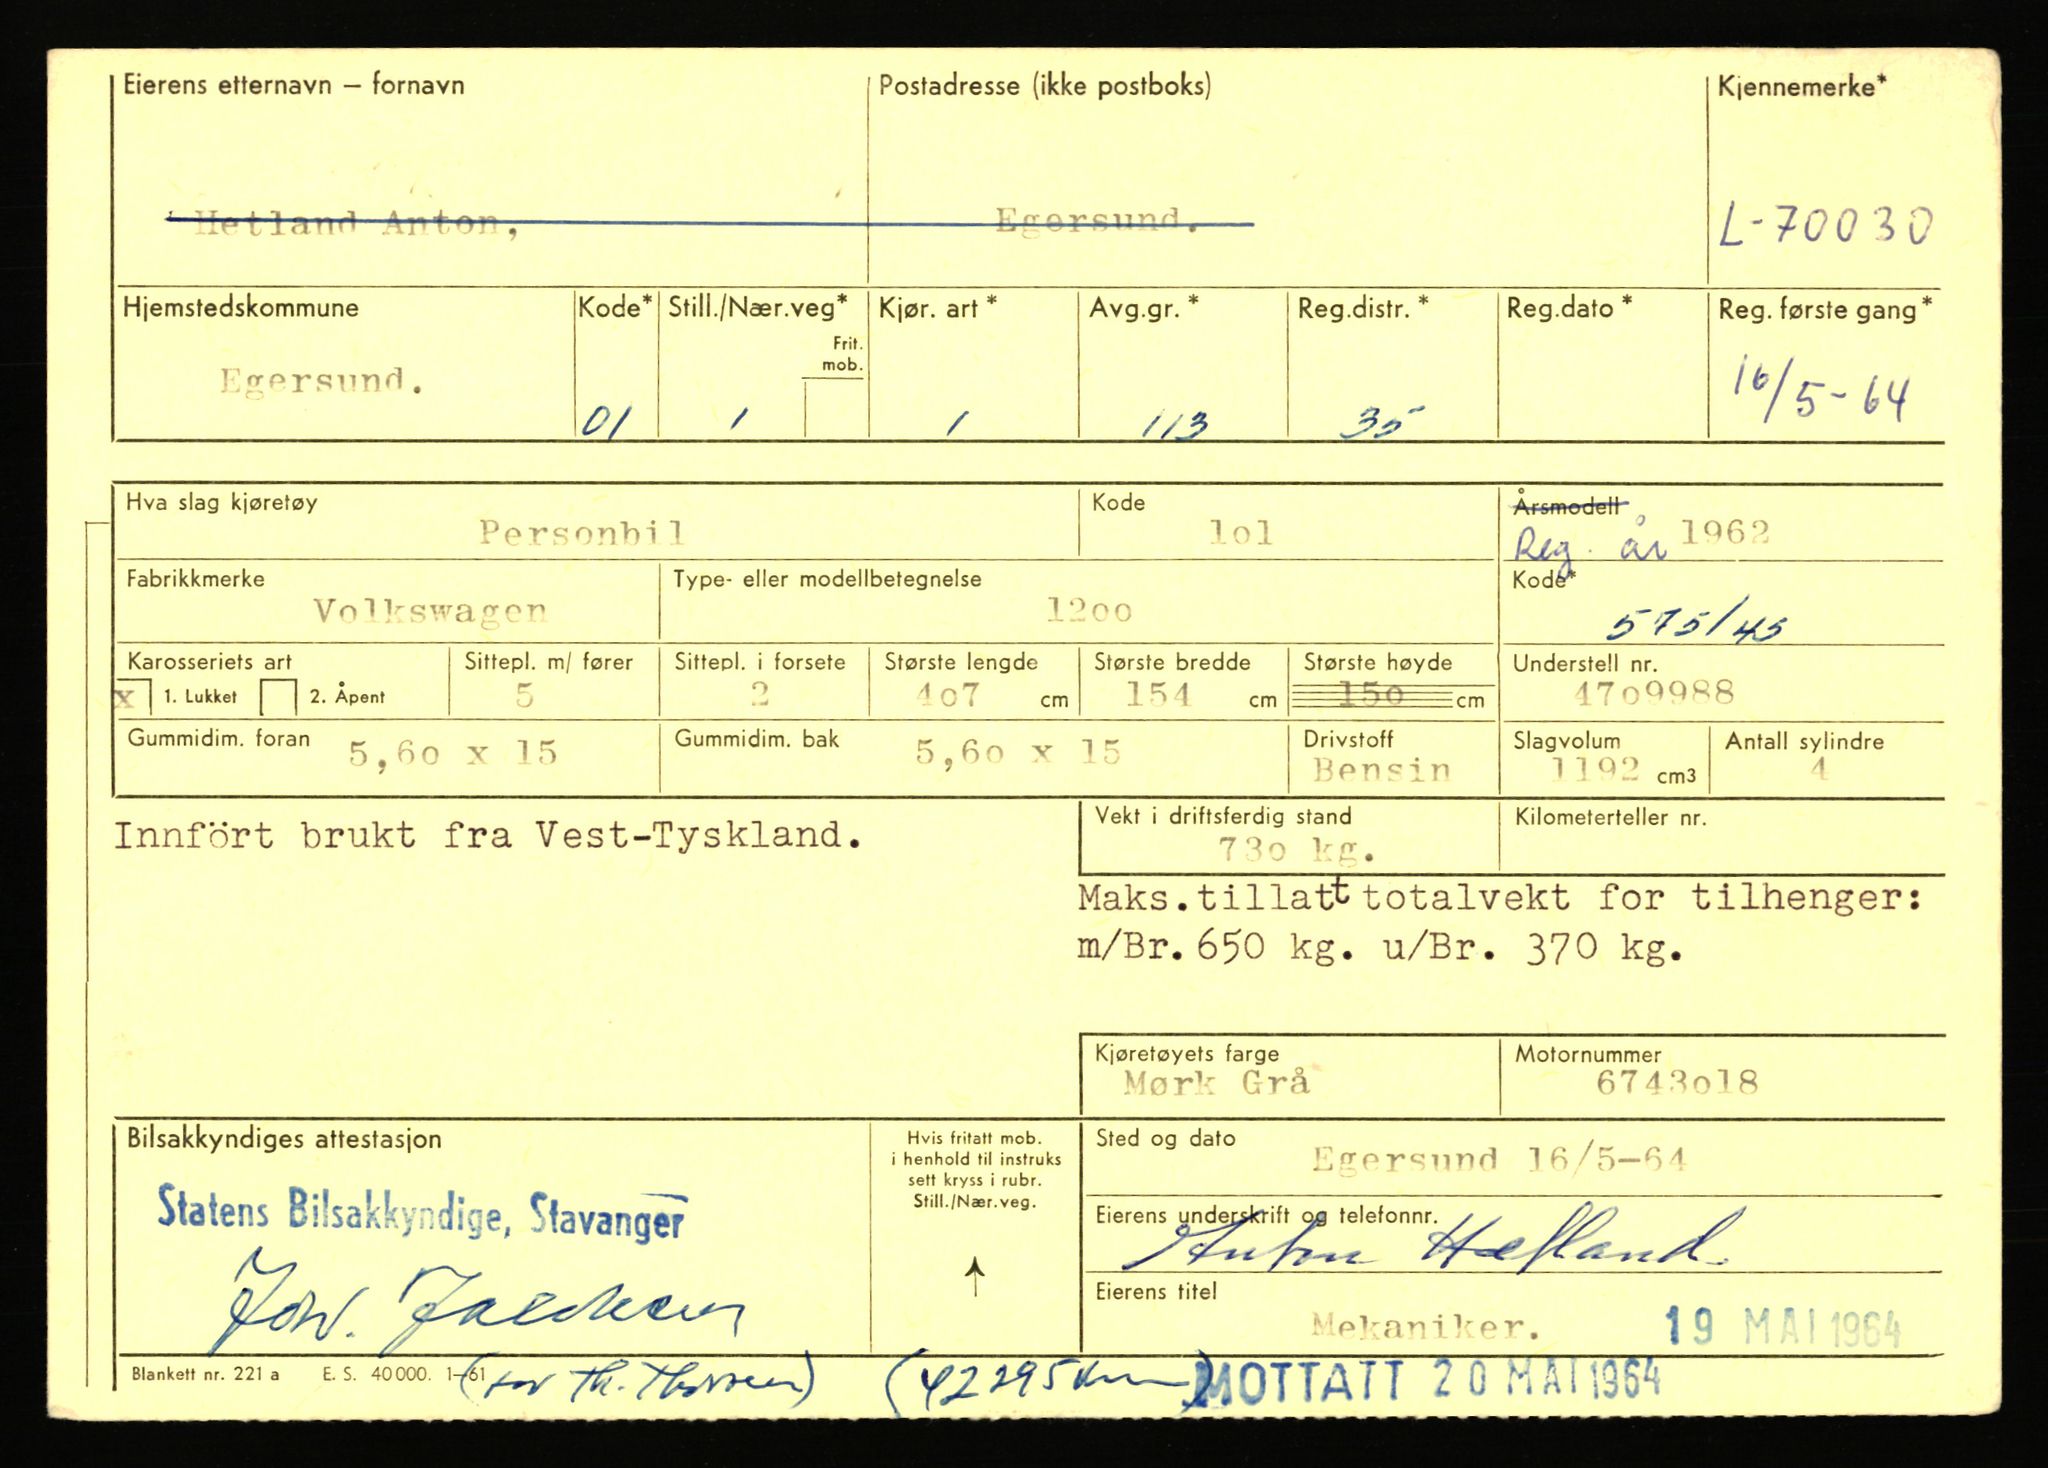 Eierens etternavn – fornavn
Postadresse (ikke postboks)
Kjennemerke*
Hetland Anton,
Egersund.
L-70030
Hjemstedskommune
Kode*
Still./Nær.veg*
Frit. mob.
Kjør. art *
Avg.gr. *
Reg.distr. *
Reg.dato *
Reg. første gang*
Egersund.
01
1
1
113
35
16/5-64
Hva slag kjøretøy
Personbil
Kode
lol
Årsmodell
Reg. år 1962
Fabrikkmerke
Volkswagen
Type- eller modellbetegnelse
12oo
Kode*
575/45
Karosseriets art
x 1. Lukket 2. Åpent
Sittepl. m/ fører
5
Sittepl. i forsete
2
Største lengde
4o7 cm
Største bredde
154 cm
Største høyde
15o cm
Understell nr.
47o9988
Gummidim. foran 5,6o x 15
Gummidim. bak 5,6o x 15
Drivstoff
Bensin
Slagvolum
1192 cm3
Antall sylindre
4
Innfört brukt fra Vest-Tyskland.
Vekt i driftsferdig stand
73o kg.
Kilometerteller nr.
Maks.tillatt totalvekt for tilhenger:
m/Br. 650 kg. u/Br. 370 kg.
Kjøretøyets farge
Mørk Grå
Motornummer
6743o18
Bilsakkyndiges attestasjon
Statens Bilsakkyndige, Stavanger
Hvis fritatt mob.
i henhold til instruks
sett kryss i rubr.
Still./Nær.veg.
Sted og dato
Egersund 16/5-64
Eierens underskrift og telefonnr.
Anton Hetland.
Eierens titel
Mekaniker.
19 MAI 1964
Blankett nr. 221 a E. S. 40000. 1-61
(42295 km)
MOTTATT 20 MAI 1964